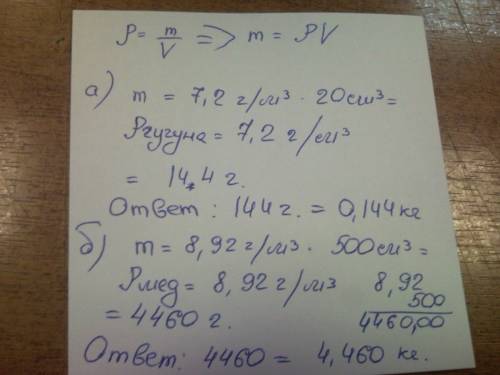 ρ = m/V => m = ρV
а) m = 7,2 г/м³ · 20см³ =
ρчугуна = 7,2 г/см³
= 14.4 г.
Ответ: 144 г. = 0,144 кг
б) m = 8,92 г/м³ · 500см³ =
ρмед = 8,92 г/м³ 8,92
500
= 4460 г. 4460,00
Ответ: 4460 = 4,460 кг.